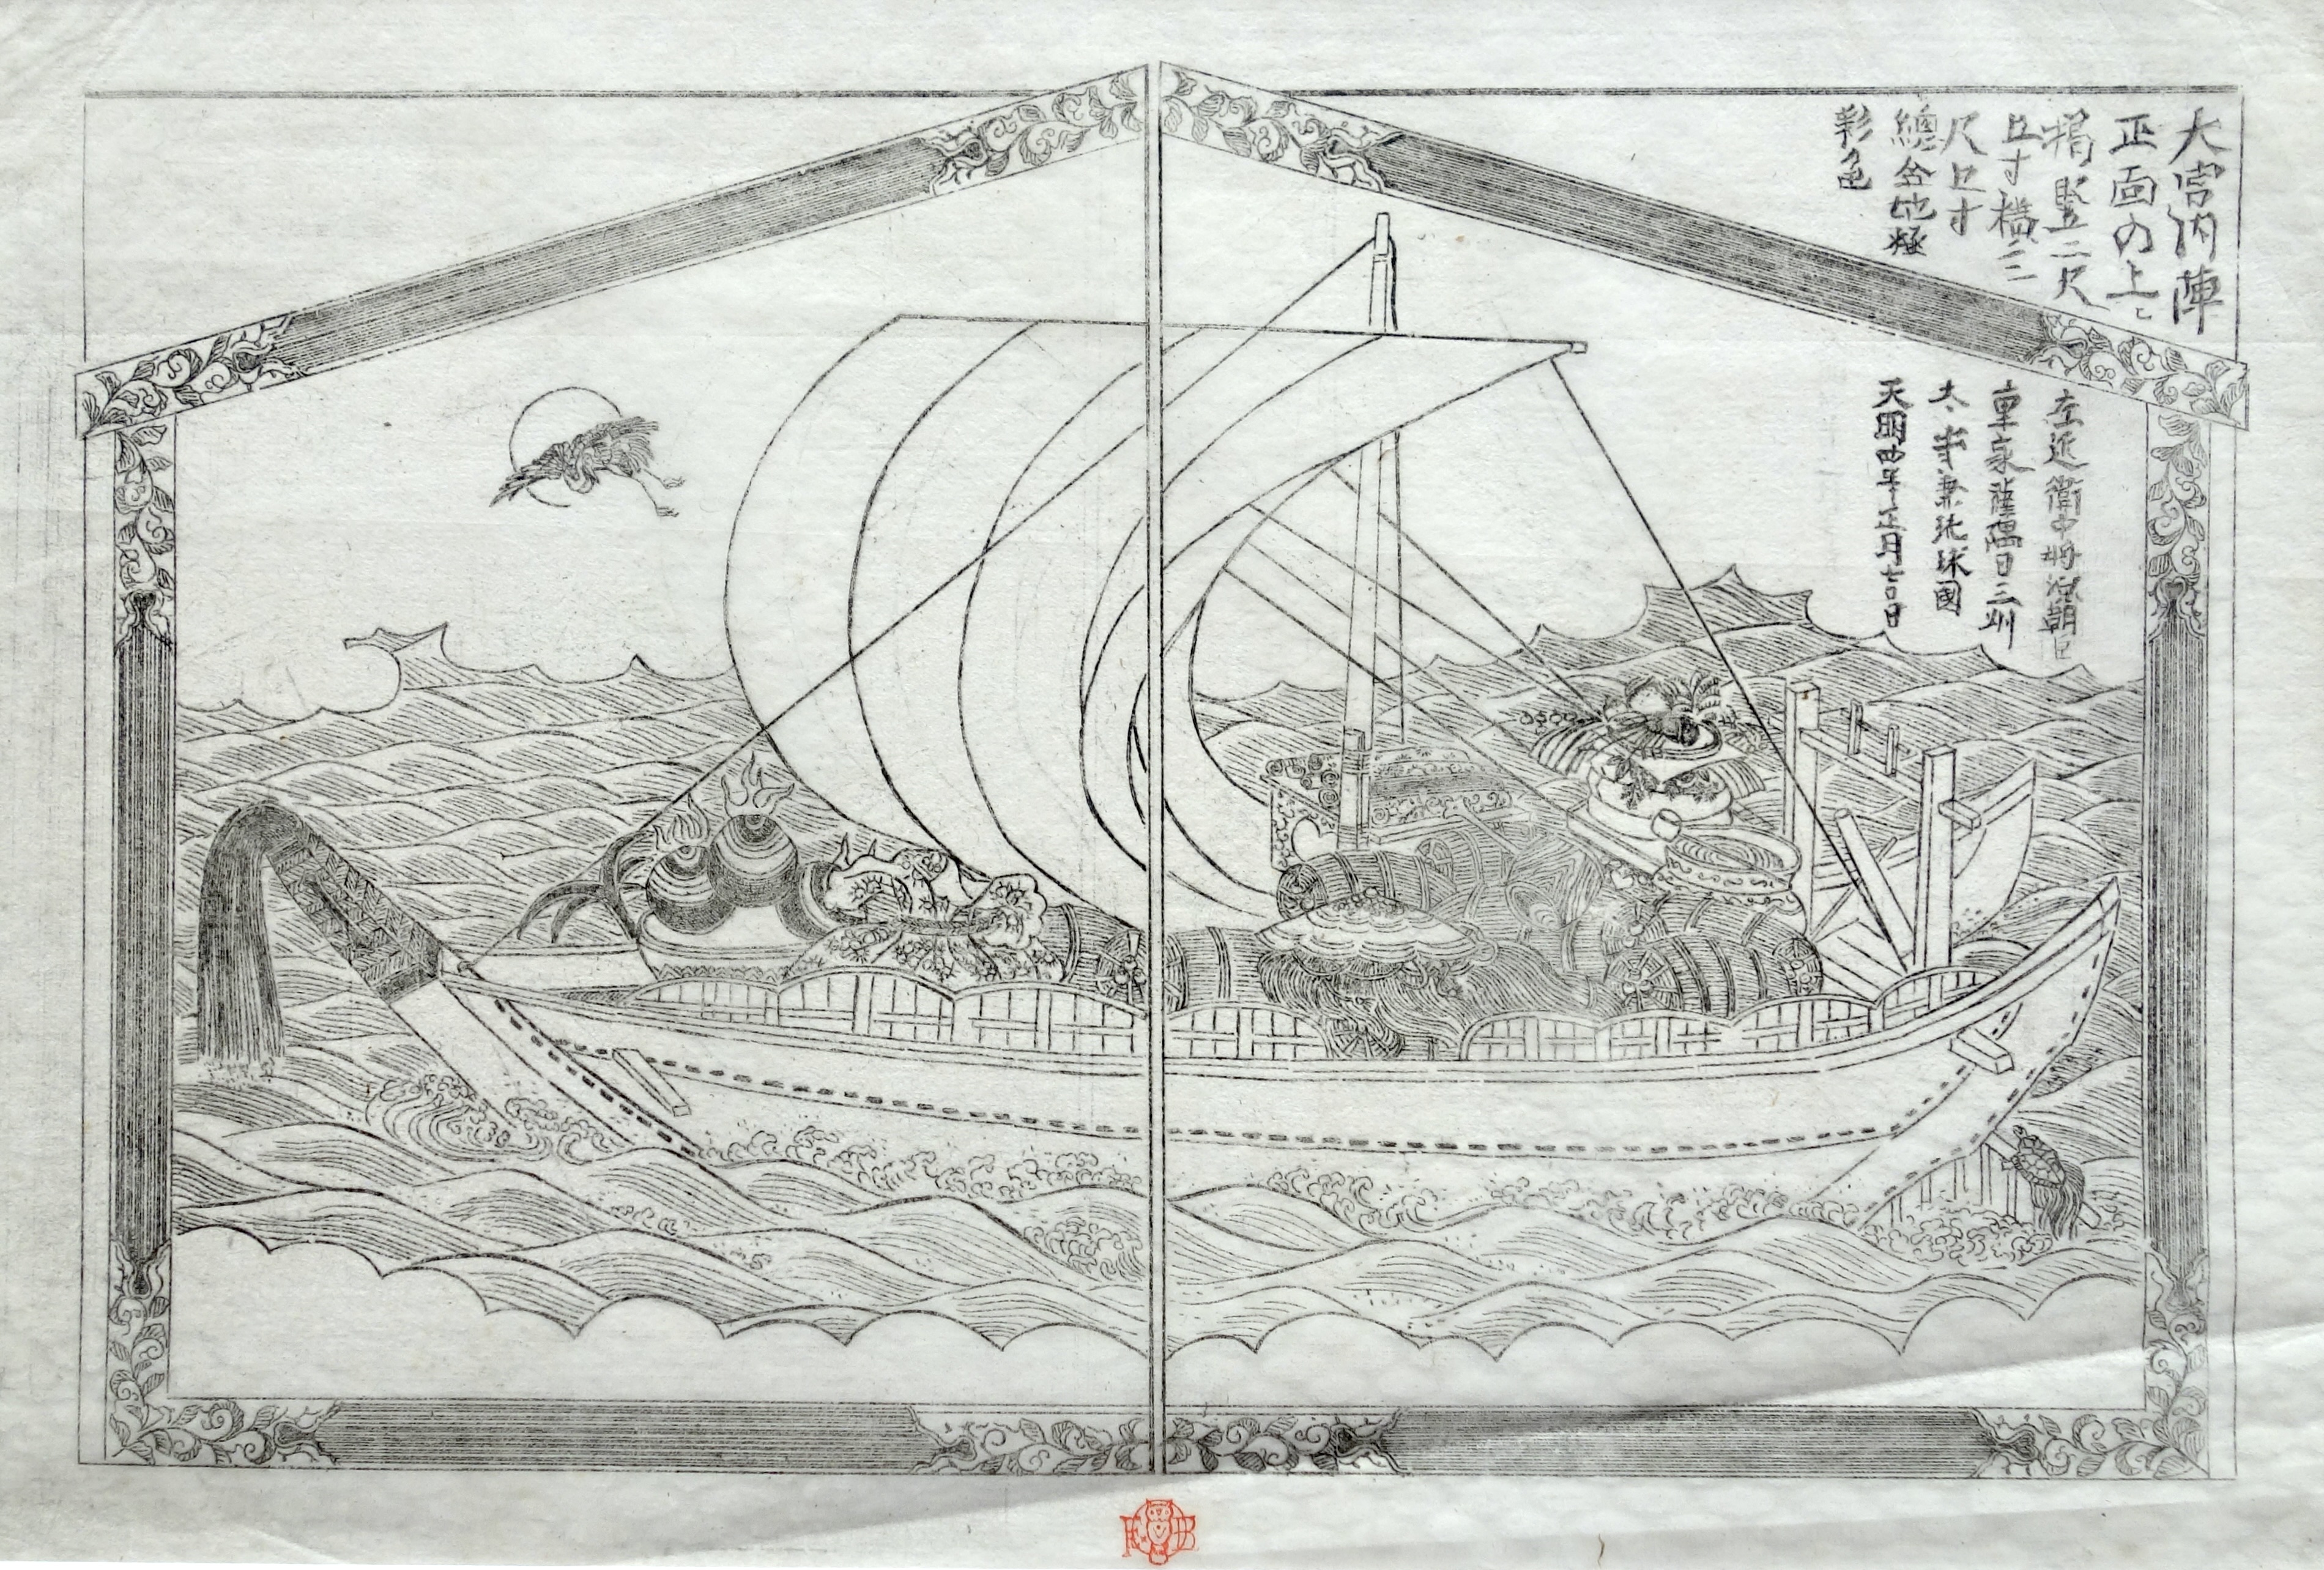 大宮内陣
正面の上ニ
掲竪二尺
五寸横三
尺五寸
總金地極
彩色
左近衛中将源朝臣
重豪薩隅日三州
太守兼琉球國
天明四年正月吉日